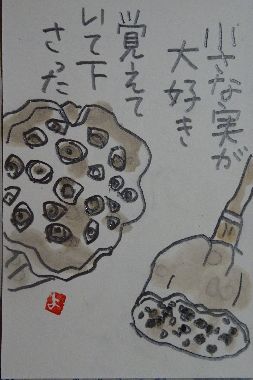 小さな実が
大好き
覚えて
いて下
さった
よ